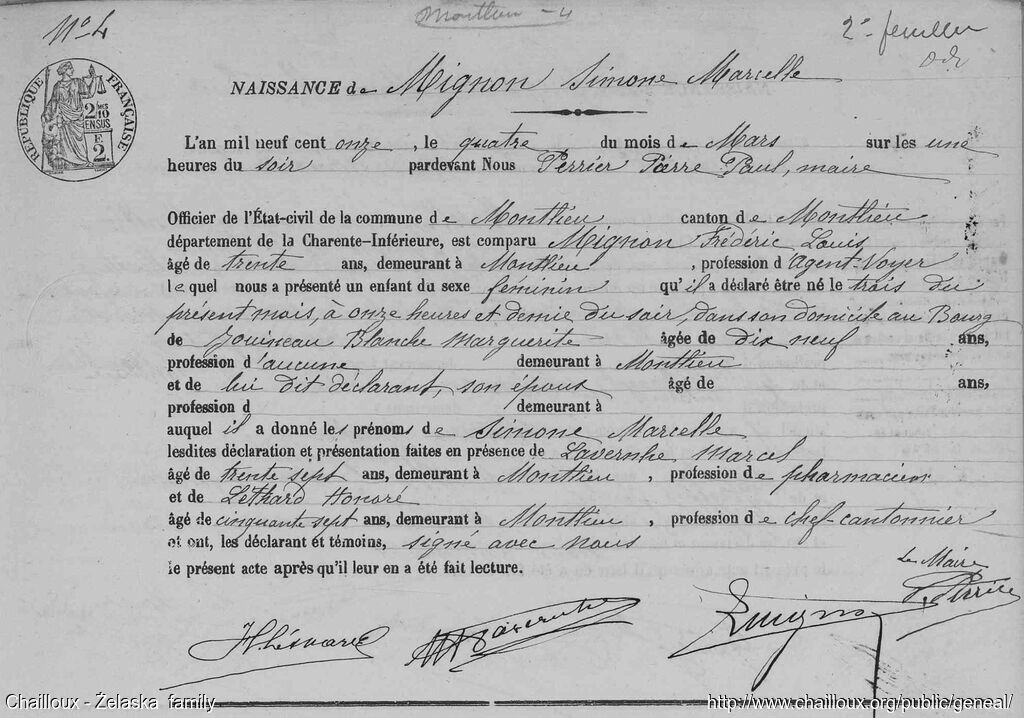 N° 4
Montlieu - 4
2e feuillet
RÉPUBLIQUE FRANÇAISE
2/10 EN SUS
2.
NAISSANCE de Mignon Simone Marcelle
L'an mil neuf cent onze, le quatre du mois de Mars sur les une
heures du soir pardevant Nous Perrier Pierre Paul, maire
Officier de l'État-civil de la commune de Montlieu canton de Montlieu
département de la Charente-Inférieure, est comparu Mignon Frédéric Louis
âgé de trente ans, demeurant à Montlieu, profession d'Agent-Voyer
lequel nous a présenté un enfant du sexe feminin qu'il a déclaré être né le trois du
présent mois, à onze heures et demie du soir, dans son domicile au Bourg
de Jouineau Blanche Marguerite âgée de dix neuf ans,
profession d'aucune demeurant à Montlieu
et de lui dit déclarant, son époux âgé de ans,
profession d demeurant à
auquel il a donné les prénoms de Simone Marcelle
lesdites déclaration et présentation faites en présence de Lavernhe Marcel
âgé de trente sept ans, demeurant à Montlieu, profession de pharmacien
et de Léthard Honoré
âgé de cinquante sept ans, demeurant à Montlieu, profession de chef-cantonnier
et ont, les déclarant et témoins, signé avec nous
le présent acte après qu'il leur en a été fait lecture.
Le Maire
Chailloux - Żelaska family
http://www.chailloux.org/public/geneal/